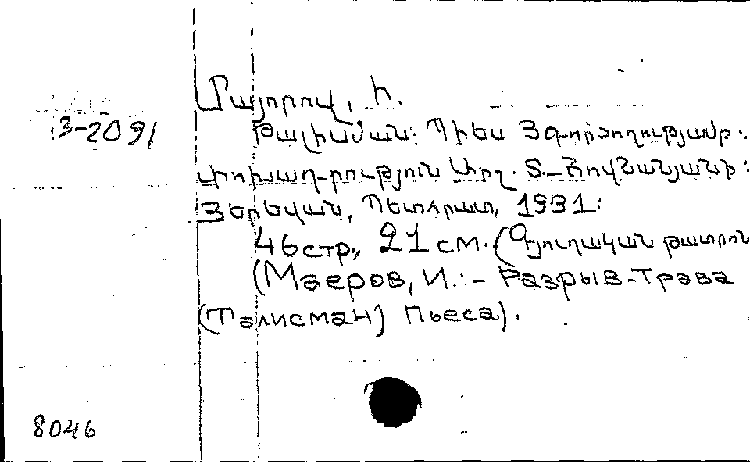 Մայորով, Ի.
3-2091
Թալիսման: Պիես 3 գործողությամբ:
Փոխադրություն Արշ. Տ.-Հովնանյանի:
Յերևան, Պետհրատ, 1931:
46 стр., 21 см. (Գյուղական թատրոն
(Маеров, И. :- Разрыв-Трава
(Талисман) Пьеса).
8046